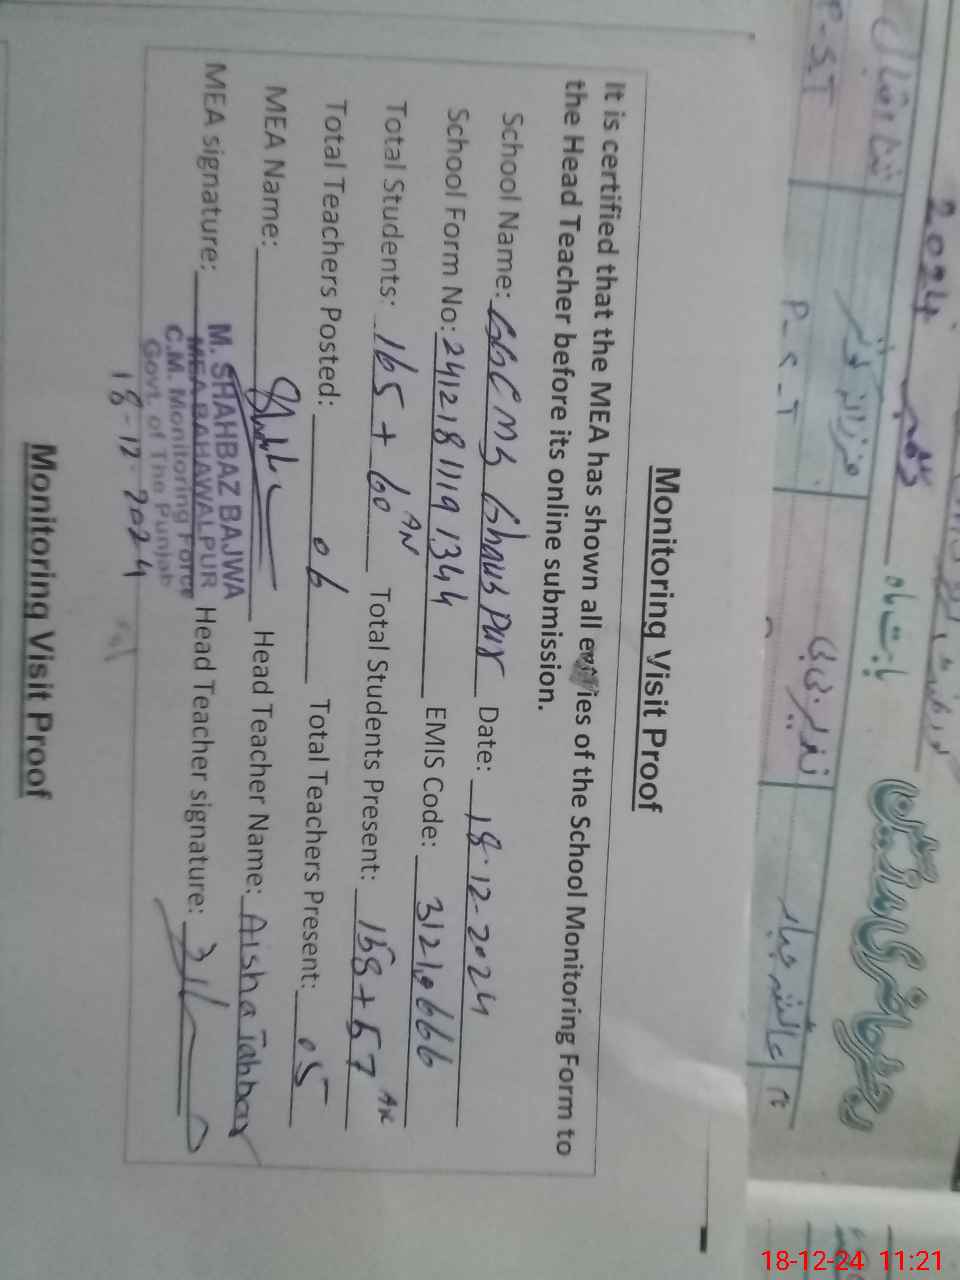 Monitoring Visit Proof
It is certified that the MEA has shown all entries of the School Monitoring Form to
the Head Teacher before its online submission.
School Name: GGCMS Ghaus Pur Date: 18-12-2024
School Form No: 24121811191344 EMIS Code: 31210666
Total Students: 165 + 60 AN Total Students Present: 158 + 57 AN
Total Teachers Posted: 06 Total Teachers Present: 05
MEA Name: Head Teacher Name: Aisha Jabbar
MEA signature: Head Teacher signature:
M. SHAHBAZ BAJWA
MEA BAHAWALPUR
C.M. Monitoring Force
Govt. of The Punjab
18-12-2024
Monitoring Visit Proof
2024
P.S.T
P-S-T
عائشہ جبار
18-12-24 11:21